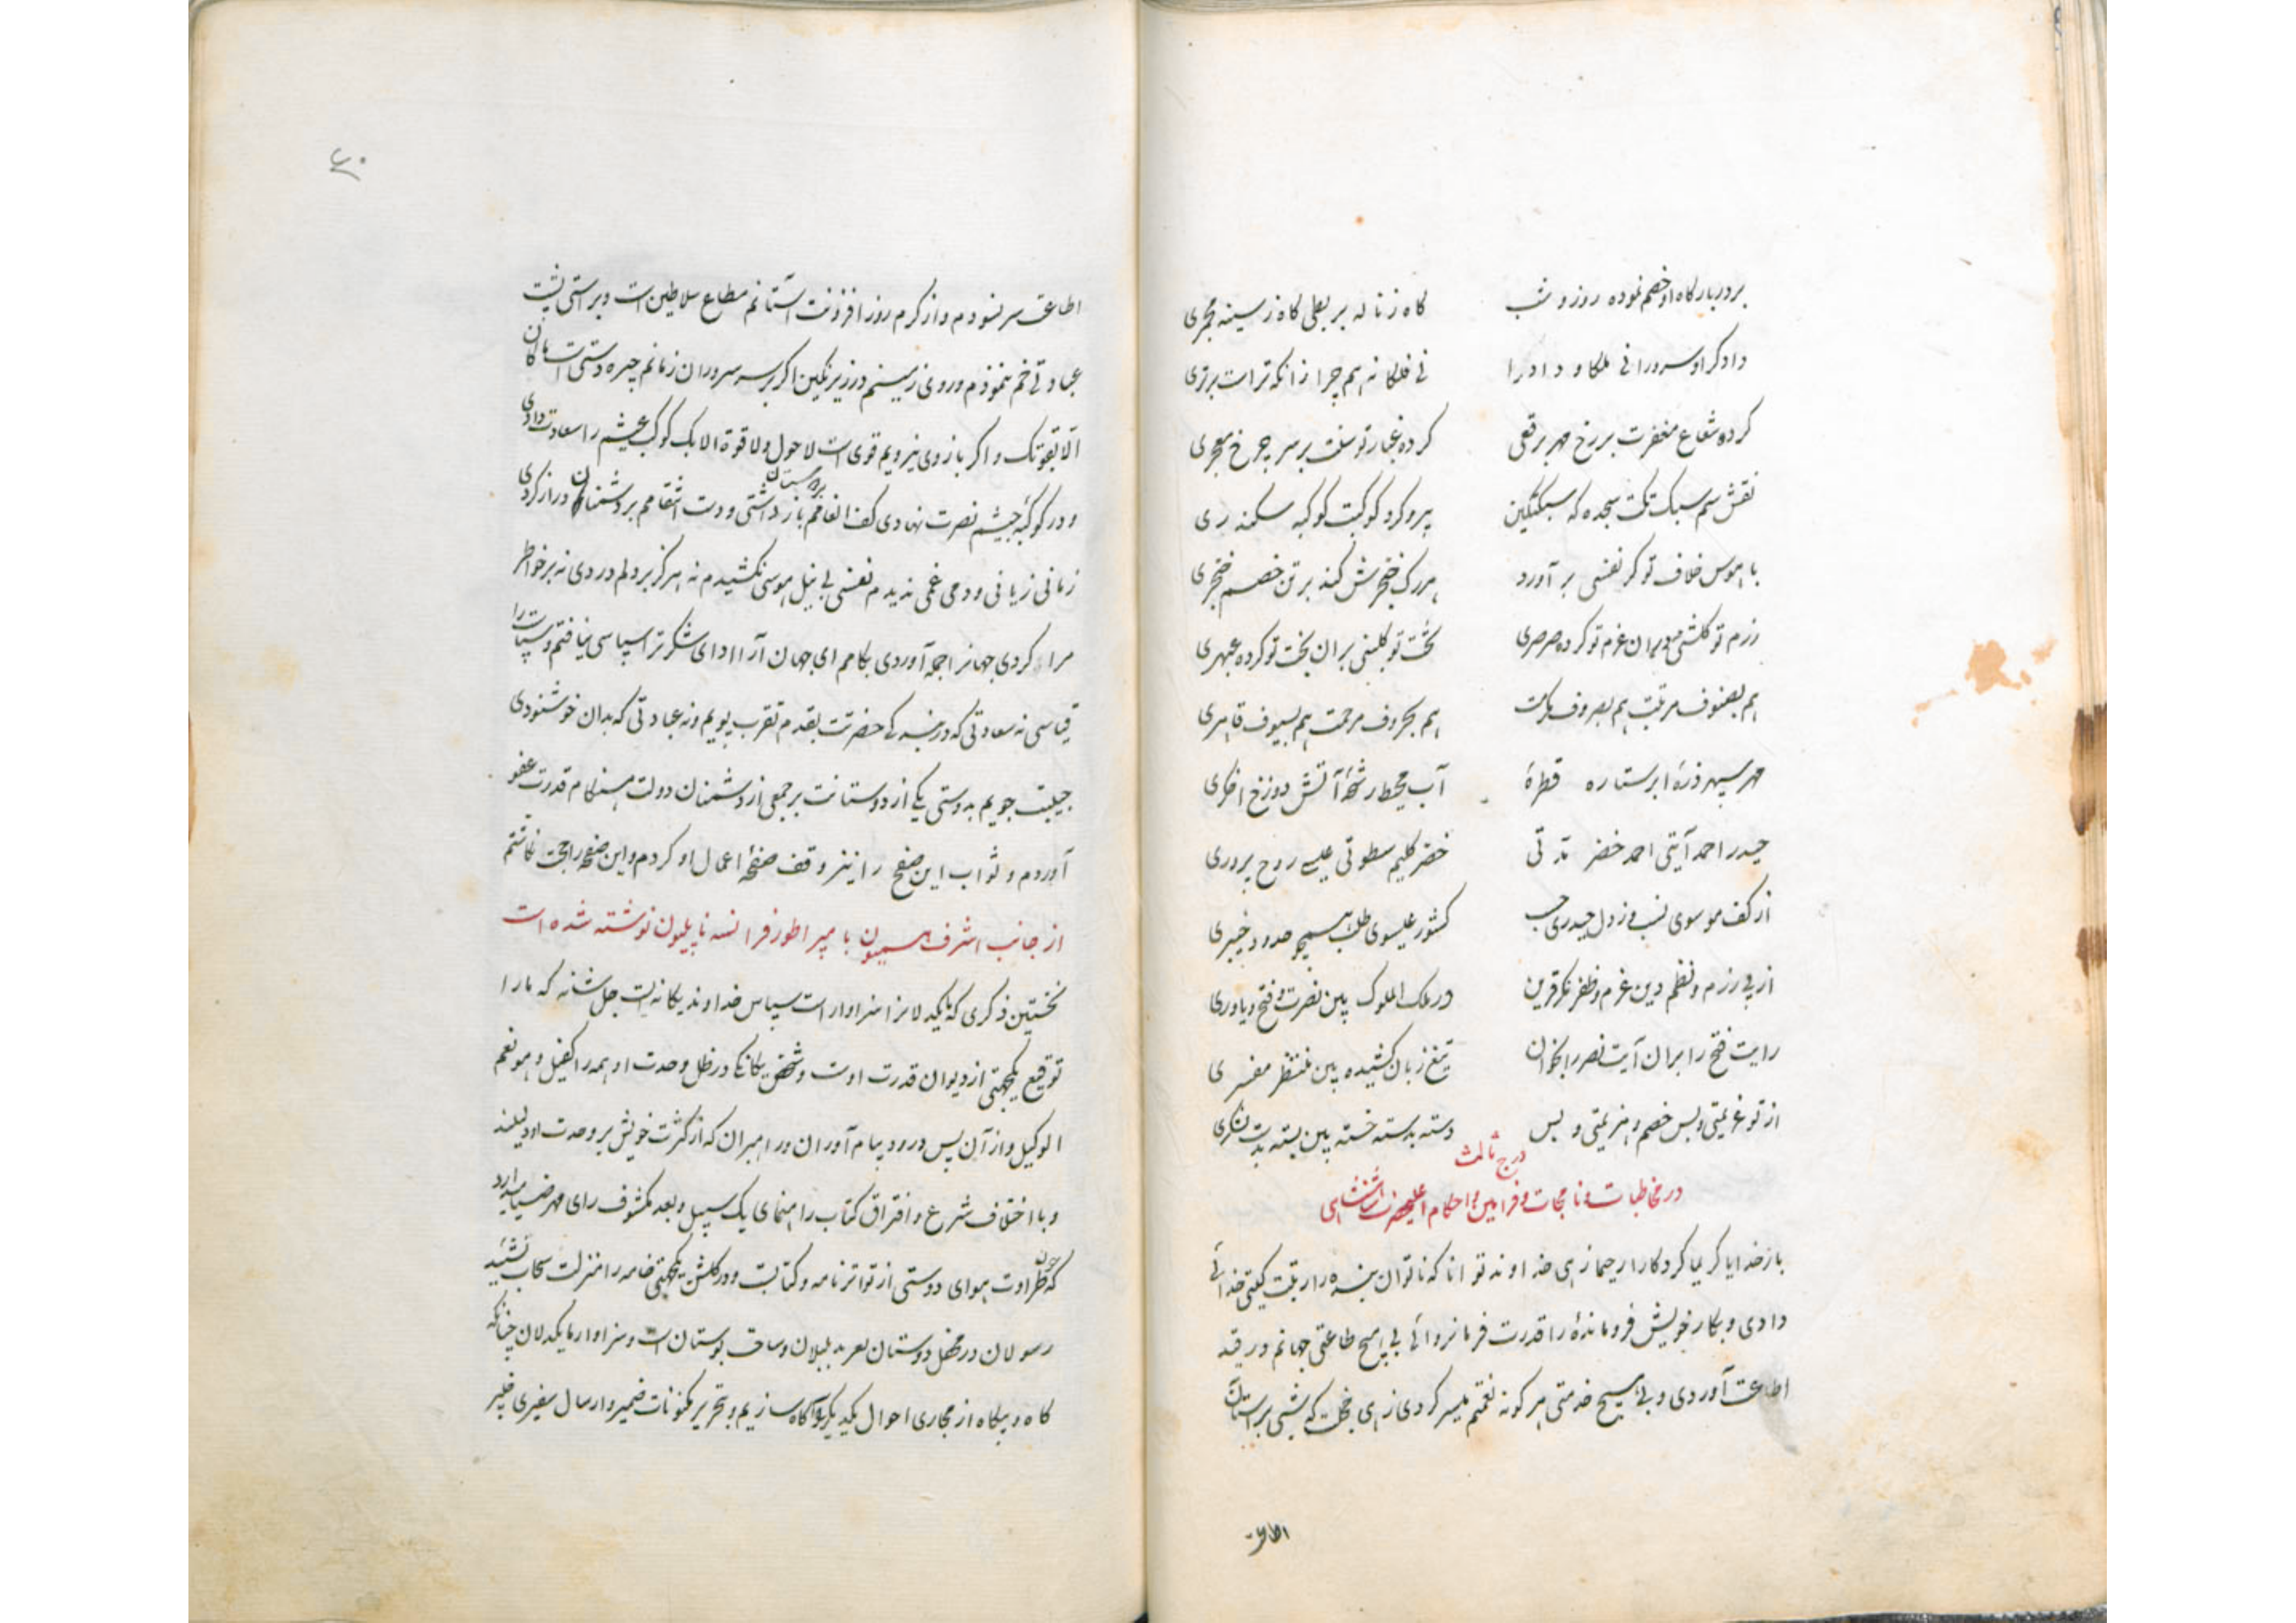 بر دربارگاه او خصم نموده روز و شب گاه ز ناله بربطی گاه ز سینه مجمری
دادگرا و سرورا نی ملکا و داورا نی فلکا نه هم چرا زانکه تراست برتری
کرده شعاع مغفرت بر رخ مهر برقعی کرده غبار توسنت بر سر چرخ معجری
نقش سم سبک تکت سجده که سبکتکین پیرو کرد کوکبت کوکبه سکندری
با هوس خلاف تو گر نفسی بر آورد هر رگ خنجرش کند بر تن خصم خنجری
رزم تو گلشنی عزم تو کرده صرصری تخت تو گلبنی بران بخت تو کرده عبهری
هم بصنوف مرتبت هم بصروف مکرمت هم بحروف مرحمت هم بسیوف قاهری
مهر سپهر ذرهٔ ابر ستاره قطرهٔ آب محیط رشحهٔ آتش دوزخ اخگری
حیدر احمد آیتی احمد خضر خضر کلیم سطوتی عیسی روح پروری
از کف موسوی نسب وز دل حیدری حسب کشور عیسوی طلب حدود خیبری
از پی رزم و نظم دین عزم و ظفر نگر قرین در ملک الملوک بین نصرت و فتح و یاوری
رایت فتح را بران آیت نصر را بخوان تیغ زبان کشیده بین منتظر مفسری
از تو عزیمتی و بس خصم و هزیمتی و بس دسته بدسته خسته بین بسته بدست لشکری
درج ثالث
در مخاطبات و نامجات و فرامین و احکام اعلیحضرت شاهنشاهی
بار خدایا کریما کردکارا رحیما زهی خداوند توانا که ناتوان بنده را رتبت گیتی خدائی
دادی و بکار خویش فرومانده را قدرت فرمانروائی بی هیچ طاعتی جهانم در قید
اطاعت آوردی و بی هیچ خدمتی هر گونه نعمتم میسر کردی زهی خجلت که شبی بر آستان
اطاعت
۶۰
اطاعت سر نسودم و از کرم روز افزونت آستانم مطاع سلاطین است و براستی پشت
عبادتی خم ننمودم و روی زمینم در زیر نگین اگر بر سر سروران زمانم چیره دستی است ما کان
الا بقوتک و اگر بازوی نیرویم قوی است لا حول و لا قوة الا بک کوکب عیشم را سعادت دادی
و در کوکبهٔ جیشم نصرت نهادی کف انعامم بر دوستان باز داشتی و دست انتقامم بر دشمنان دراز کردی
زمانی زیانی و دمی غمی ندیدم نفسی بی نیل هوسی نکشیدم نه هرگز بر دلم دردی نه بر خواطر
مرا کردی جهانرا جمله آوردی بکامم ای جهان آرا ادای شکر ترا سپاسی نیافتم و سپاست را
قیاسی نه سعادتی که در بندگی حضرتت بقدم تقرب پویم و نه عبادتی که بدان خوشنودی
جویم بدوستی یکی از دوستانت بر جمعی از دشمنان دولت هنگام قدرت عفو
آوردم و ثواب این صفح را نیز وقف صفحهٔ اعمال او کردم و این صفحه را حجت نگاشتم
از جانب اشرف همیون با مپراطور فرانسه ناپلیون نوشته شده است
نخستین ذکری که یکدلانرا سزاوار است سپاس خداوند یگانه ایست جل شانه که ما را
توقیع یکجهتی از دیوان قدرت اوست و شخص یگانگی در ظل وحدت او همه را کفیل و هو نعم
الوکیل و از آن پس درود پیام آوران و راهبران که از کثرت خویش بر وحدت او دلیلند
و با اختلاف شرع و افتراق کتاب راهنمای یک سبیل و بعد مکشوف رای مهر ضیا میدارد
که چون طراوت هوای دوستی از تواتر نامه و کتابت و در گلشن یکجهتی خامه را منزلت سحاب
رسولان در محفل دوستان بلبلان و ساحت بوستان است و سزاوار ما یکدلان چنانکه
گاه و بیگاه از مجاری احوال یکدیگر آگاه سازیم و بتحریر مکنونات ضمیر و ارسال سفیری